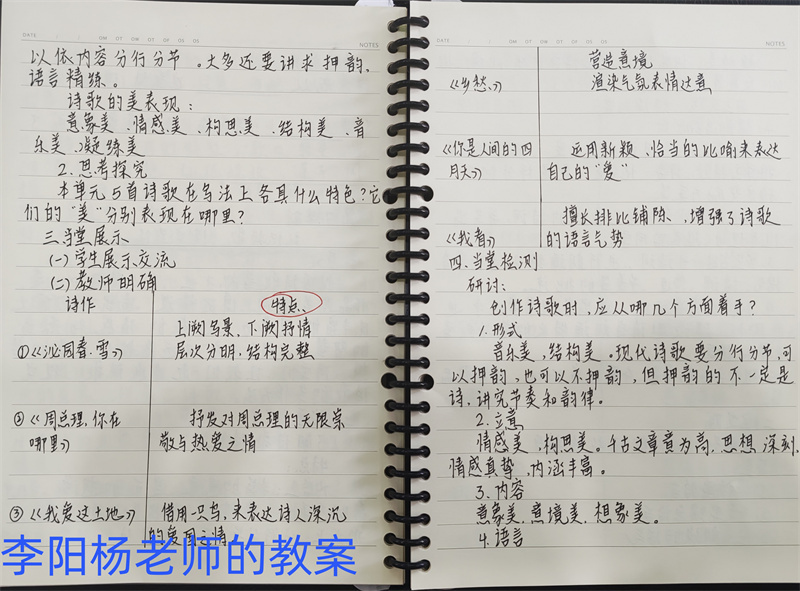 DATE
NOTES
以依内容分行分节。大多还要讲求押韵、
语言精练。
诗歌的美表现：
意象美、情感美、构思美、结构美、音
乐美、凝练美
2.思考探究
本单元5首诗歌在写法上各具什么特色？它
们的"美"分别表现在哪里？
三.当堂展示
(一)学生展示交流
(二)教师明确
诗作 特点
上阕写景、下阕抒情
①《沁园春·雪》 层次分明，结构完整
②《周总理，你在 抒发对周总理的无限崇
哪里》 敬与热爱之情
③《我爱这土地》 借用一只鸟，来表达诗人深沉
的爱国之情。
李阳杨老师的教案
DATE
NOTES
营造意境
《乡愁》 渲染气氛表情达意
《你是人间的四 运用新颖、恰当的比喻来表达
月天》 自己的"爱"
擅长排比铺陈、增强了诗歌
《我看》 的语言气势
四.当堂检测
研讨：
创作诗歌时，应从哪几个方面着手？
1.形式
音乐美，结构美。现代诗歌要分行分节，可
以押韵，也可以不押韵，但押韵的不一定是
诗，讲究节奏和韵律。
2.立意
情感美，构思美。千古文章意为高，思想深刻，
情感真挚，内涵丰富。
3.内容
意象美，意境美，想象美。
4.语言